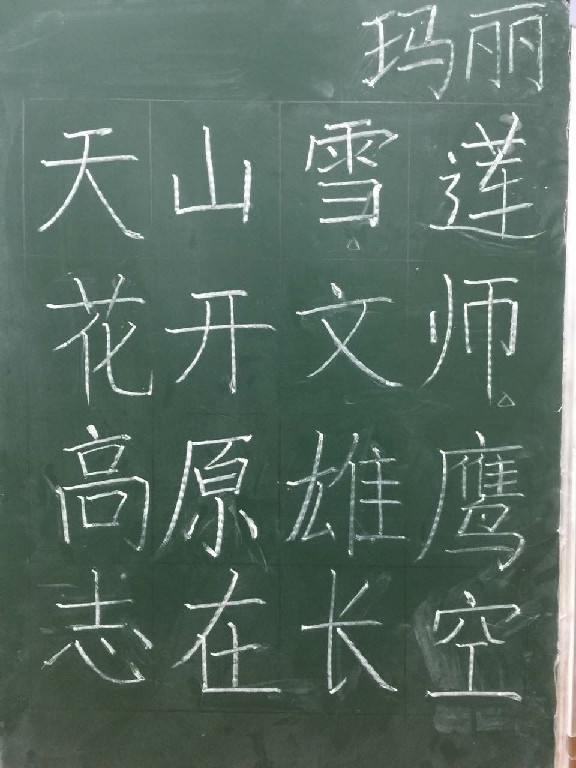 玛丽
天山雪莲
花开文师
高原雄鹰
志在长空